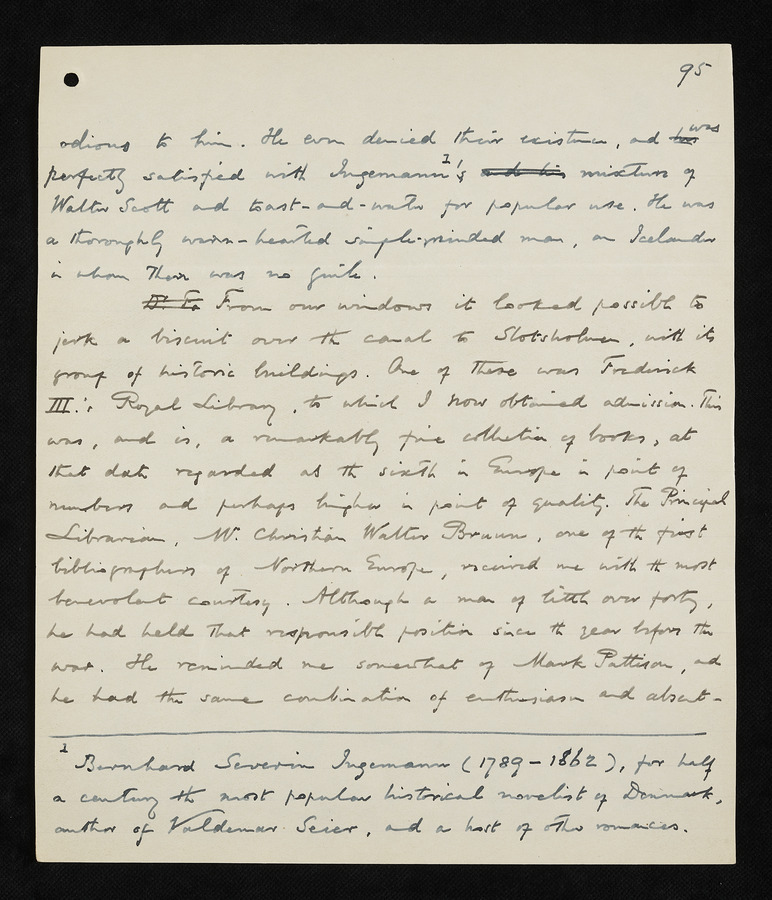 95
odious to him. He even denied their existence, and his was
perfectly satisfied with Ingemann¹'s and his mixture of
Walter Scott and toast-and-water for popular use. He was
a thoroughly warm-hearted single-minded man, an Icelander
in whom there was no guile.
Dr. Fo From our windows it looked possible to
jerk a biscuit over the canal to Slotsholmen, with its
group of historic buildings. One of these was Frederick
III.'s Royal Library, to which I now obtained admission. This
was, and is, a remarkably fine collection of books, at
that date regarded as the sixth in Europe in point of
numbers and perhaps higher in point of quality. The Principal
Librarian, Mr. Christian Walter Bruun, one of the first
bibliographers of Northern Europe, received me with the most
benevolent courtesy. Although a man of little over forty,
he had held that responsible position since the year before the
war. He reminded me somewhat of Mark Pattison, and
he had the same combination of enthusiasm and absent-
¹ Bernhard Severin Ingemann (1789-1862), for half
a century the most popular historical novelist of Denmark,
author of Valdemar Seier, and a host of other romances.